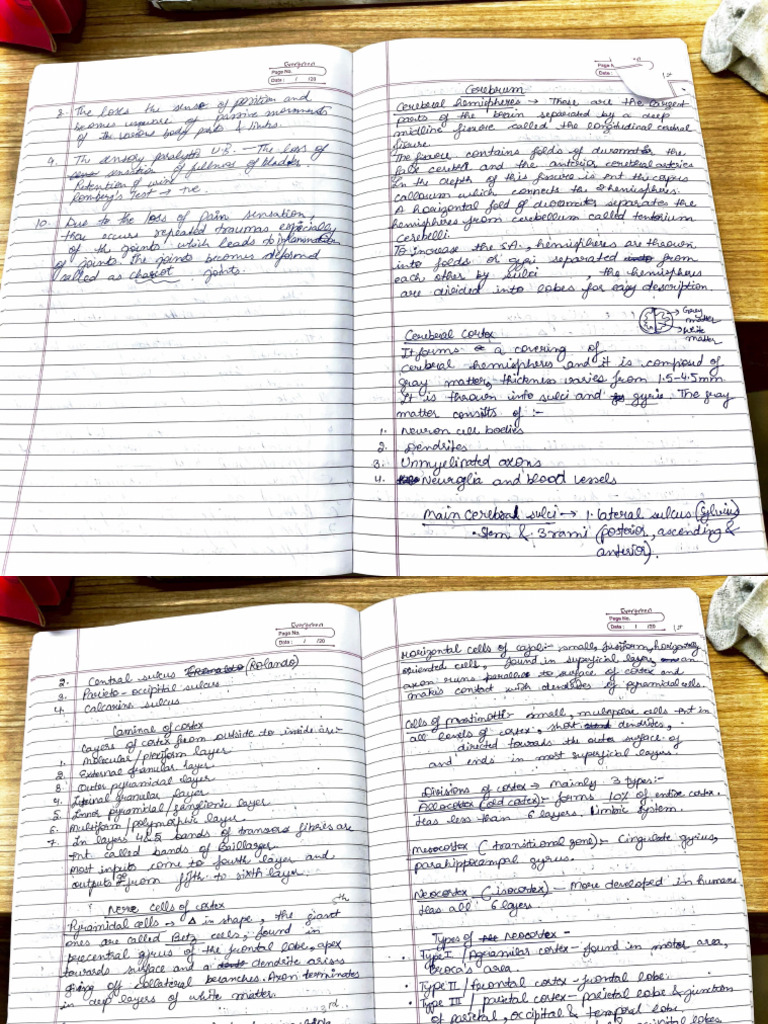 Evergreen
Page No.
Date: / /20
8. The loses the sense of position and
becomes unaware of passive movements
of the various body parts & limbs.
9. Th sensory paralytic U.B. – The loss of
sensation of fullness of bladder
Retention of urine
Romberg's Test → +ve.
10. Due to the loss of pain sensation,
ther occurs repeated traumas especially
of the joints which leads to inflammation
of joints. The joints becomes deformed
called as charcot joints.
Page
Date:
Cerebrum
Cerebral hemispheres → These are the largest
parts of the brain separated by a deep
midline fissure called the longitudinal cerebral
fissure.
The fissure contains folds of duramater the
falx cerebri and the anterior cerebral arteries
In the depth of this fissure is pnt the corpus
callosum which connects the 2 hemispheres.
A horizontal fold of duramater separates the
hemispheres from cerebellum called tentorium
cerebelli.
To increase the S.A., hemispheres are thrown
into folds or gyri separated from
each other by sulci , the hemispheres
are divided into lobes for easy description.
Gray
matter
White
matter
Cerebral Cortex
It forms a covering of
cerebral hemispheres and it is composed of
gray matter, thickness varies from 1.5-4.5mm
It is thrown into sulci and gyrie. The gray
matter consists of :-
1. Neuron cell bodies
2. Dendrites
3. Unmyelinated axons
4. Neuroglia and blood vessels
Main Cerebral sulci → 1. lateral sulcus (Sylvius)
• Stem & 3 rami (posterior, ascending &
anterior).
Evergreen
Page No.
Date: / /20
2. Central sulcus (Rolando)
3. Parieto-occipital sulcus
4. Calcarine sulcus
Laminal of cortex
Layers of cortex from outside to inside are-
1. Molecular/plexiform layer
2. External granular layer
3. Outer pyramidal layer
4. Internal granular layer
5. Inner pyramidal/ganglionic layer
6. Multiform/polymorphic layer
7. In layers 4&5 bands of transvrs fibries are
pnt. called bands of Baillarger
most inputs come to fourth layer and
outputs go from fifth to sixth layer.
Nerve cells of cortex
Pyramidal cells → Δ in shape, the giant
ones are called Betz cells, found in 5th
precentral gyrus of the frontal lobe, apex
towards surface and a dendrite arises
giving off collateral branches. Axon terminates
in deep layers of white matter.
3rd
Evergreen
Page No.
Date: / /20
Horizontal cells of cajal:- small, fusiform, horizontally
oriented cells, found in superficial layer, an
axon runs parallel to surface of cortex and
makes contact with dendrites of pyramidal cells.
Cells of martinotti:- small, multipolar cells pnt in
all levels of cortex, short dendrites,
directed towards the outer surface of
and ends in most superficial layers.
Divisions of cortex → Mainly 3 types:-
Allocortex (old cortex):- forms 10% of entire cortex.
Has less than 6 layers. Limbic system.
Mesocortex (transitional zone):- Cingulate gyrus,
parahippocampal gyrus.
Neocortex (isocortex) – More developed in humans
Has all 6 layers
Types of Neocortex -
• Type I / Agranular cortex – found in motor area,
Broca's area.
• Type II / frontal cortex – frontal lobe.
• Type III / parietal cortex – parietal lobe & junction
of parietal, occipital & temporal lobe.
occipital lobes